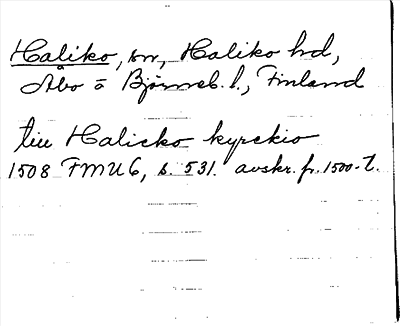 Haliko, sn, Haliko hd,
Åbo o Björneb. l., Finland
tiil Halicko kyrckio
1508 FMU 6, s. 531. avskr. fr. 1500-t.